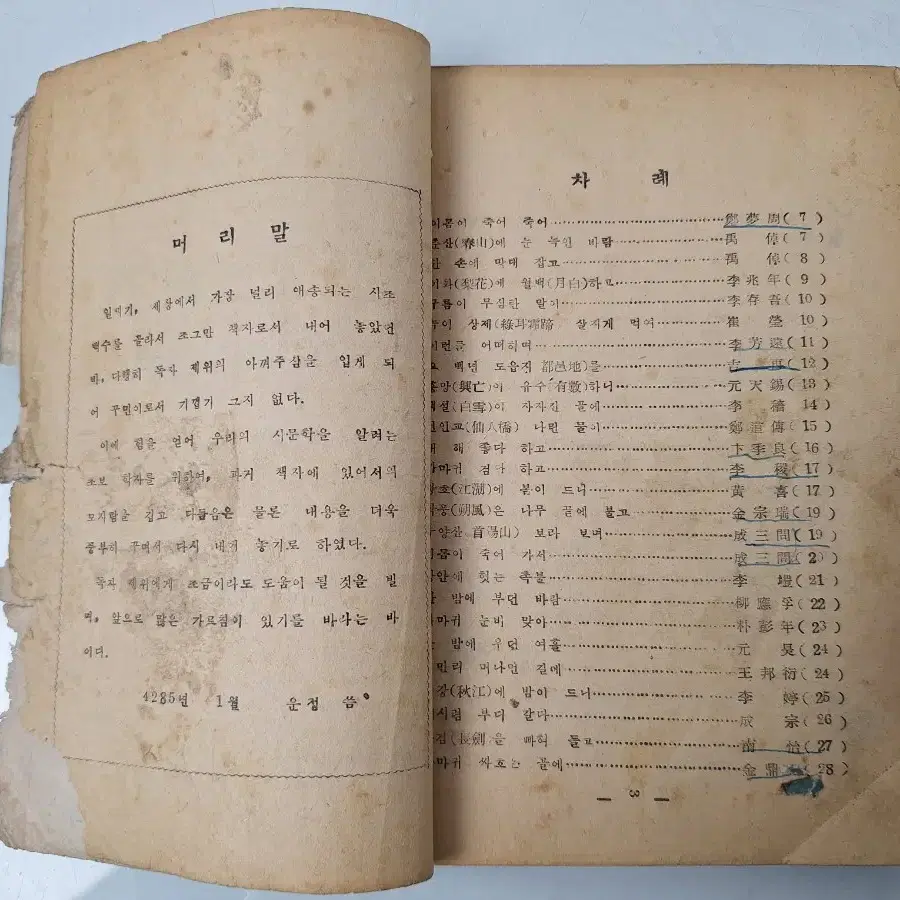 머 리 말
일찌기, 세상에서 가장 널리 애송되는 시조
백수를 골라서 조그만 책자로서 내어 놓았던
바, 다행히 독자 제위의 아껴주심을 입게 되
어 꾸민이로서 기껍기 그지 없다.
이에 힘을 얻어 우리의 시문학을 알려는
초보 학자를 위하여, 과거 책자에 있어서의
모자람을 깁고 다듬음은 물론 내용을 더욱
풍부히 꾸며서 다시 내어 놓기로 하였다.
독자 제위에게 조금이라도 도움이 될 것을 빌
며, 앞으로 많은 가르침이 있기를 바라는 바
이다.
4285년 1월 운정 씀
차 례
이몸이 죽어 죽어 鄭夢周(7)
춘산(春山)에 눈 녹인 바람 禹倬(7)
한 손에 막대 잡고 禹倬(8)
이화(梨花)에 월백(月白)하고 李兆年(9)
구름이 무심탄 말이 李存吾(10)
녹이 상제(綠耳霜蹄) 살지게 먹여 崔瑩 10)
이런들 어떠하며 李芳遠(11)
오백년 도읍지 都邑地)를 吉再(12)
흥망(興亡)이 유수 有數)하니 元天錫(13)
백설(白雪)이 자자진 골에 李穡 14)
선인교(仙人橋) 나린 물이 鄭道傳(15)
내 해 좋다 하고 卞季良(16)
가마귀 검다 하고 李稷(17)
강호(江湖)에 봄이 드니 黃喜(17)
삭풍(朔風)은 나무 끝에 불고 金宗瑞(19)
수양산 首陽山) 보라 보며 成三問(19)
이몸이 죽어 가서 成三問(20)
방안에 혓는 촉불 李塏(21)
간 밤에 부던 바람 柳應孚(22)
가마귀 눈비 맞아 朴彭年(23)
간 밤에 우던 여흘 元昊(24)
천만리 머나먼 길에 王邦衍(24)
추강(秋江)에 밤이 드니 李婷(25)
이시렴 부디 갈다 成宗(26)
장검(長劍)을 빠혀 들고 南怡(27)
가마귀 싸호는 골에 金鼎(28)
— 3 —